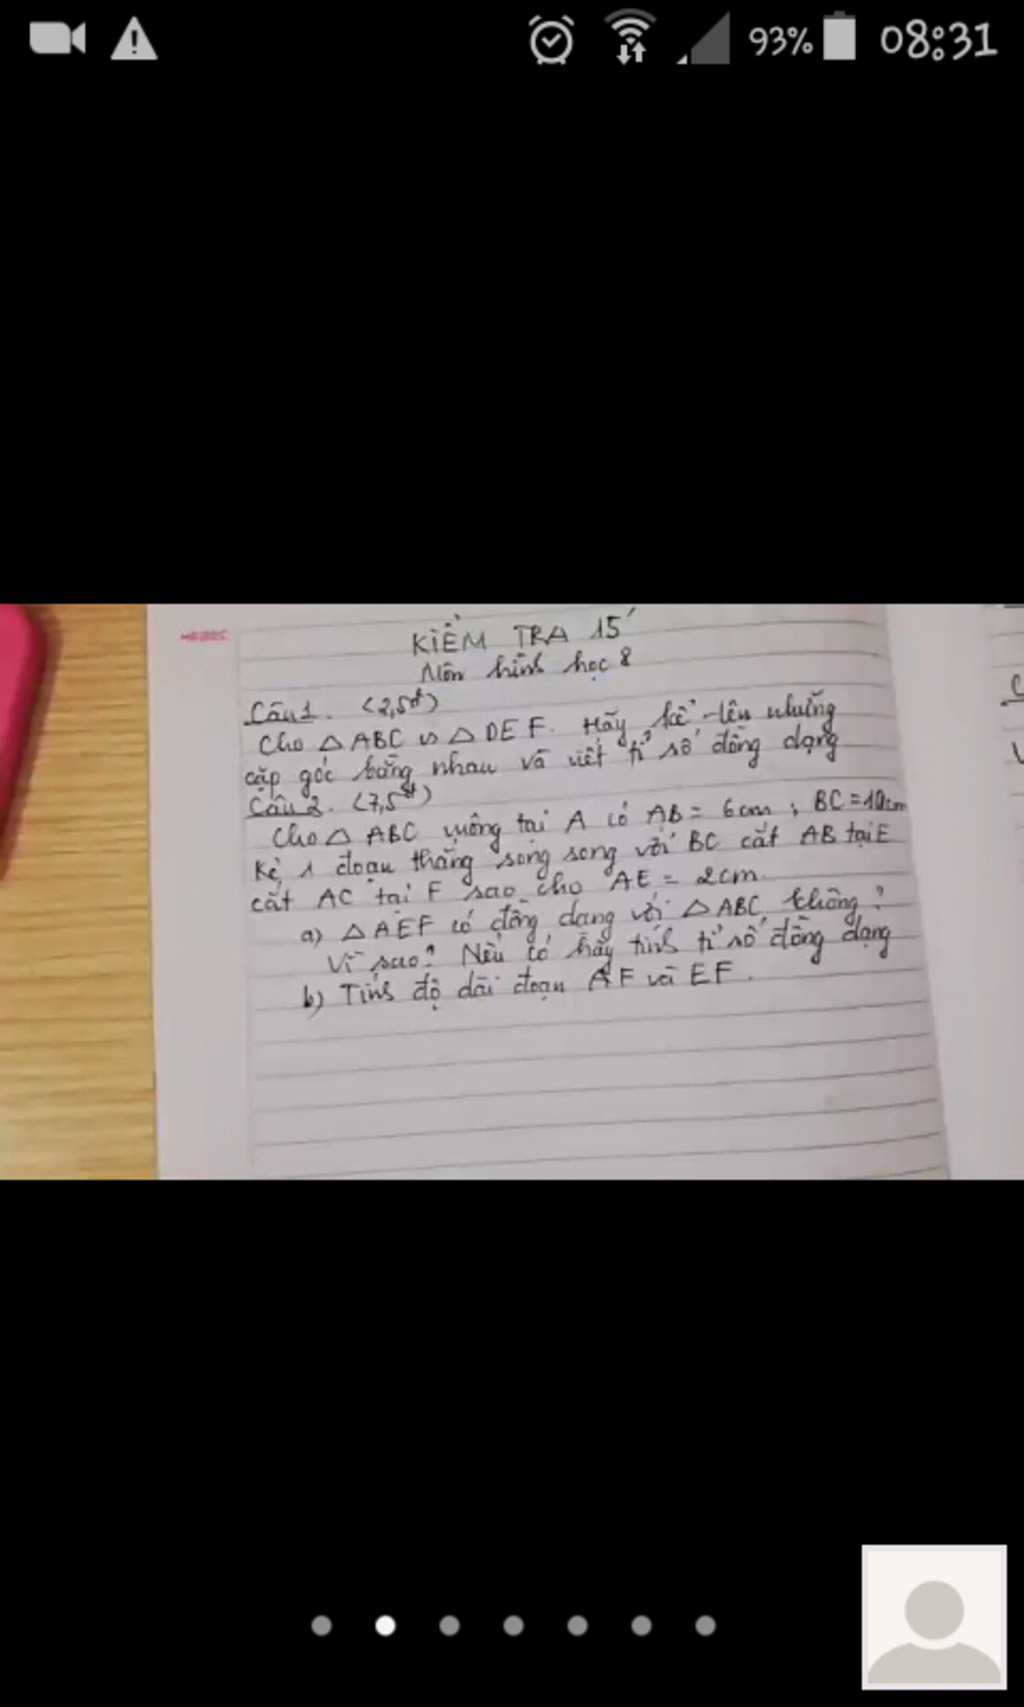 93% 08:31
KIỂM TRA 15'
Môn hình học 8
Câu 1. (2,5đ)
Cho △ ABC ∽ △ DEF. Hãy kể tên những
cặp góc bằng nhau và viết tỉ số đồng dạng
Câu 2. (7,5đ)
Cho △ ABC vuông tại A có AB = 6cm ; BC = 10cm
Kẻ 1 đoạn thẳng song song với BC cắt AB tại E
cắt AC tại F sao cho AE = 2cm.
a) △ AEF có đồng dạng với △ ABC không?
Vì sao? Nếu có hãy tính tỉ số đồng dạng
b) Tính độ dài đoạn AF và EF.